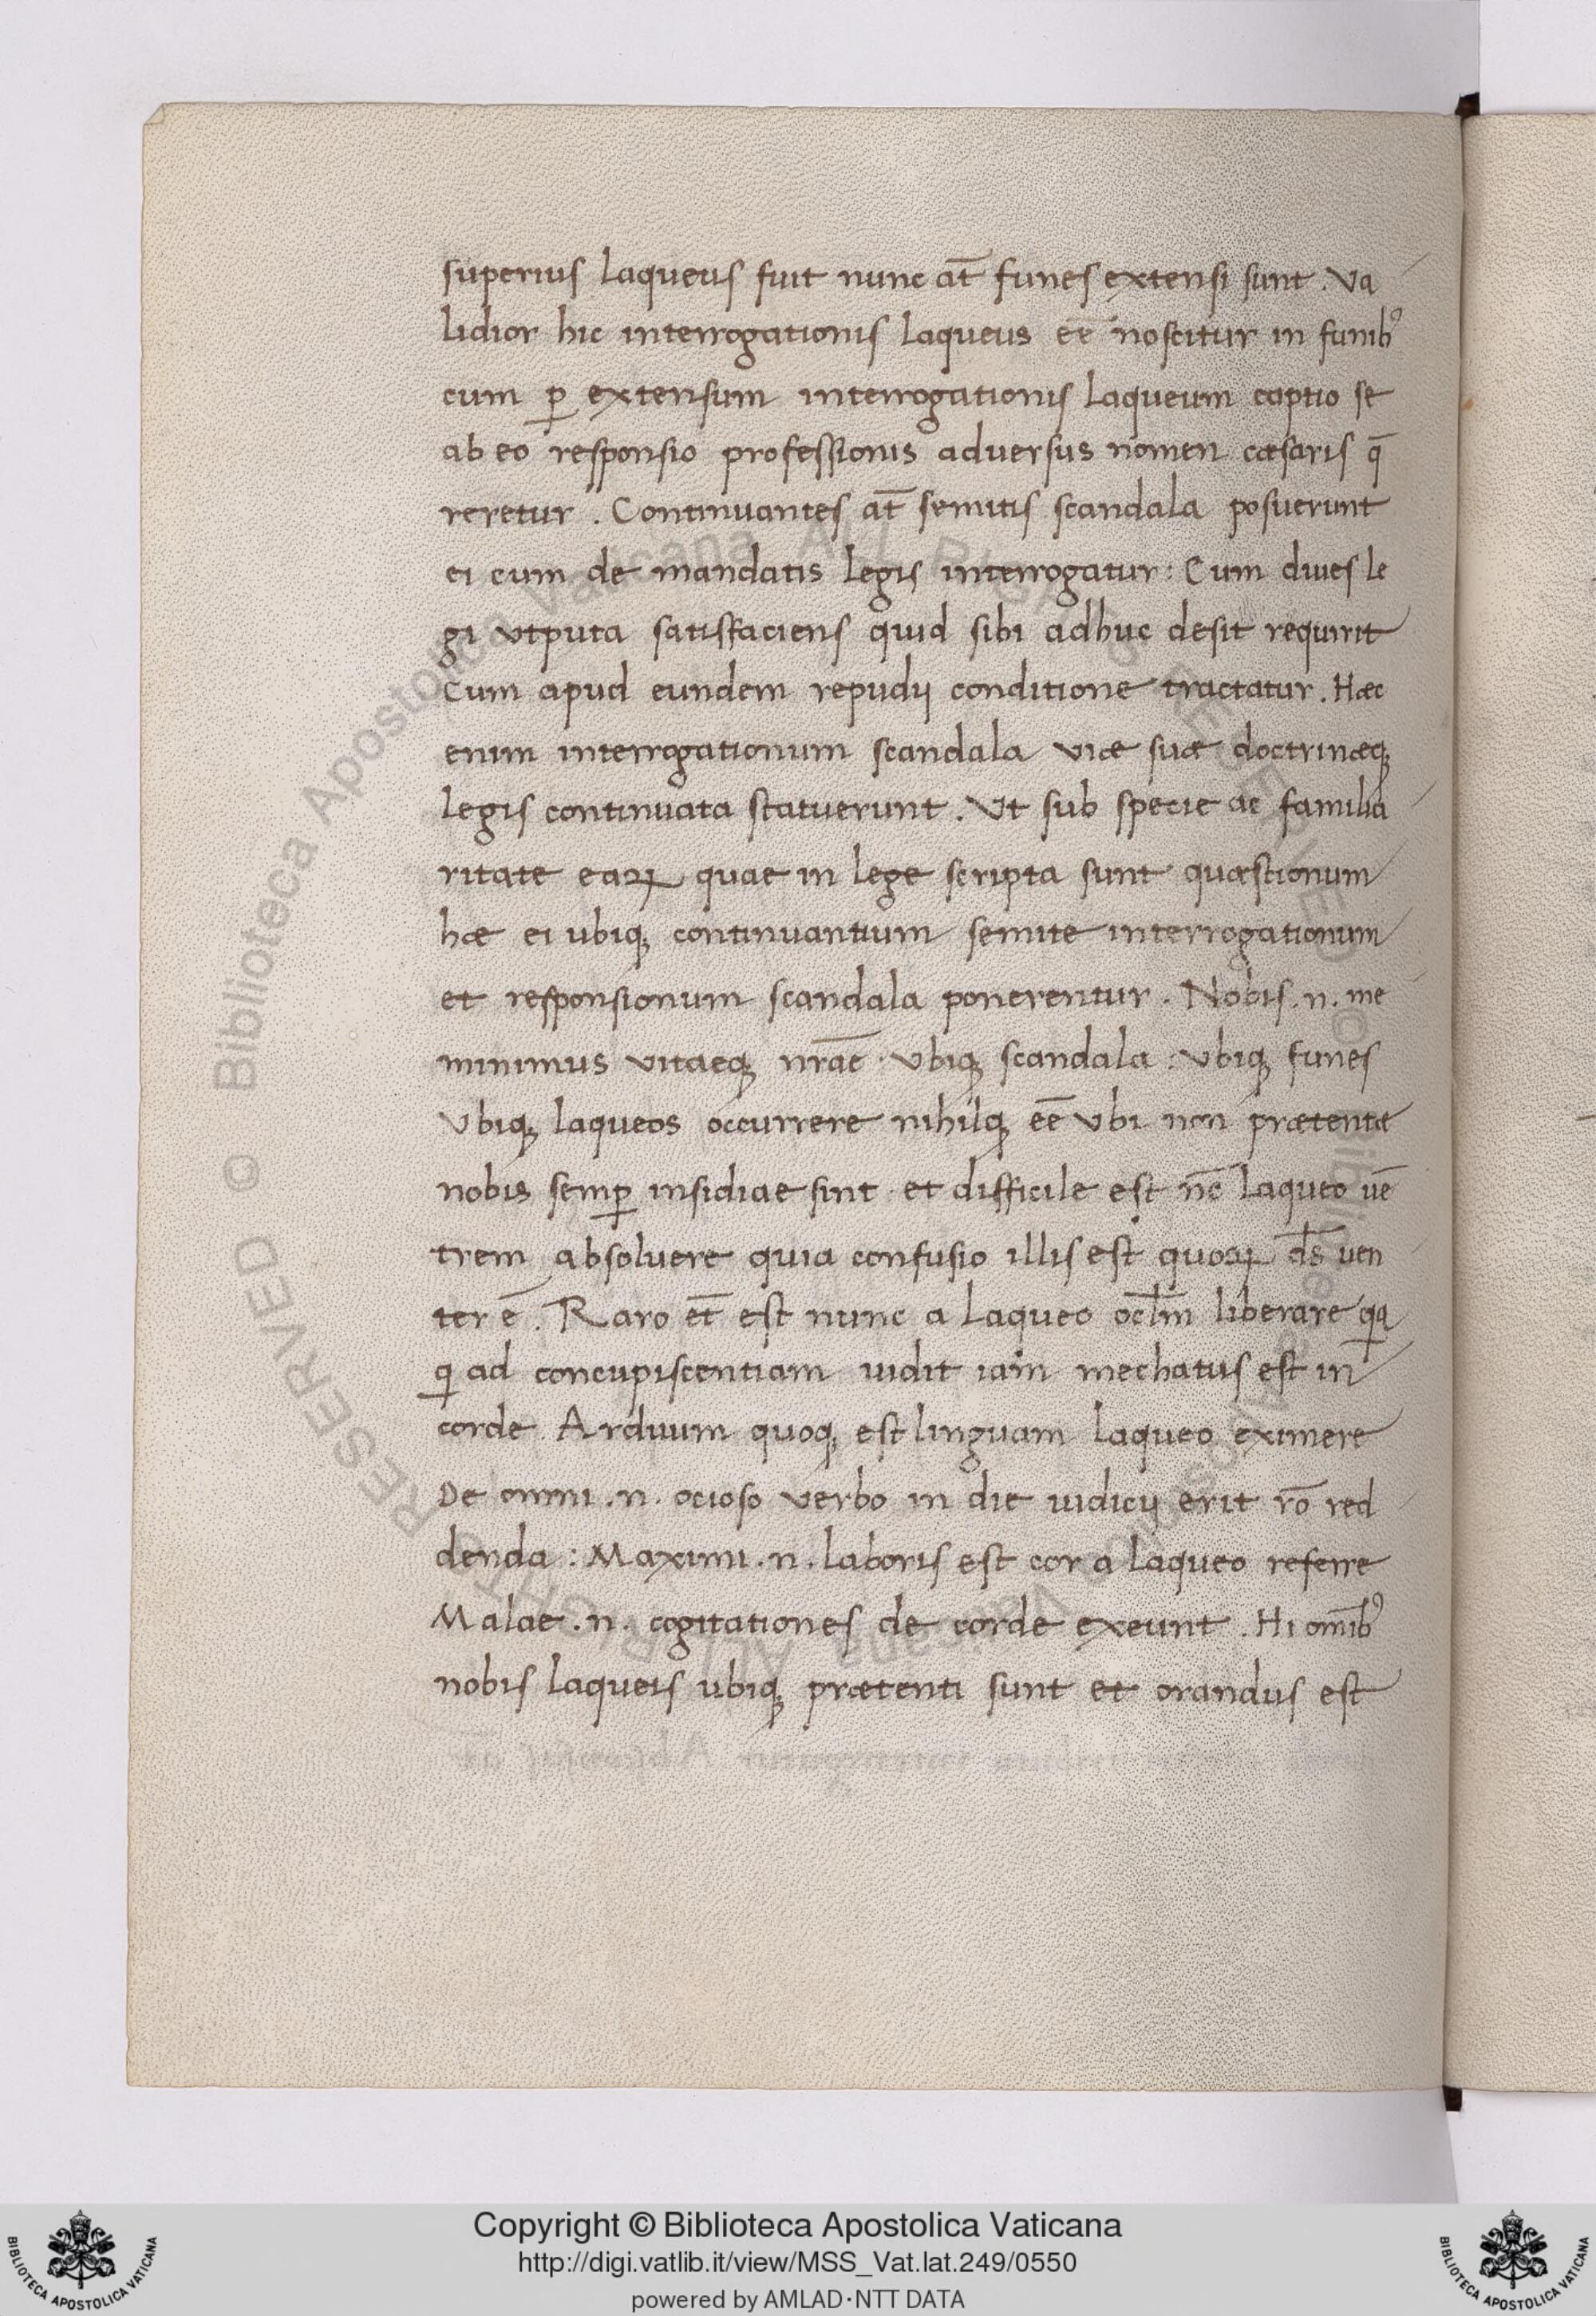 superius laqueus fuit nunc at̄ funes extensi sunt. Va
lidior hic interrogationis laqueus eē noscitur in funibꝰ
cum ꝑ extensum interrogationis laqueum captio se
ab eo responsio professionis adversus nomen cæsaris q̄
reretur. Continuantes at̄ semitis scandala posuerunt
ei cum de mandatis legis interrogatur: Cum dives le
gi utputa satisfaciens quid sibi adhuc desit requirit
Cum apud eundem repudij conditione tractatur. Hæc
enim interrogationum scandala viæ suæ doctrinæqꝫ
legis continuata statuerunt. Ut sub specie ac familia
ritate eaꝝ quae in lege scripta sunt quæstionum
hæ ei ubiqꝫ continuantium semite interrogationum
et responsionum scandala ponerentur. Nobis .n. me
minimus vitaeqꝫ nr̄ae ubiqꝫ scandala: ubiqꝫ funes
Ubiqꝫ laqueos occurrere nihilqꝫ eē ubi non prætentæ
nobis semꝑ insidiae sint et difficile est nc̄ laqueo uē
trem absolvere quia confusio illis est quoꝝ ds̄ ven
ter ē. Raro et̄ est nunc a laqueo ocl̄m liberare qa
q ad concupiscentiam vidit iam mechatus est in
corde Arduum quoqꝫ est linguam laqueo eximere
De omni .n. ocioso verbo in die iudicij erit rō red
denda: Maximi .n. laboris est cor a laqueo referre
Malae .n. cogitationes de corde exeunt. Hi om̄ibꝰ
nobis laqueis ubiqꝫ prætenti sunt et orandus est
Copyright © Biblioteca Apostolica Vaticana
http://digi.vatlib.it/view/MSS_Vat.lat.249/0550
powered by AMLAD·NTT DATA
BIBLIOTECA APOSTOLICA VATICANA
BIBLIOTECA APOSTOLICA VATICANA